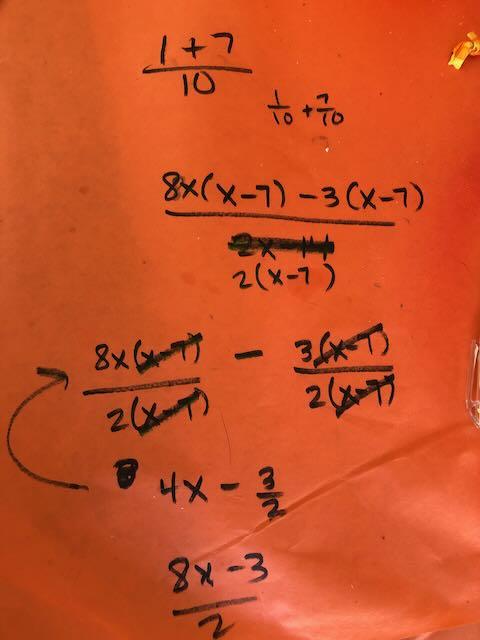 1 + 7
10
1/10 + 7/10
8x(x-7) - 3(x-7)
2x - 14
2(x-7)
8x(x-7) - 3(x-7)
2(x-7) 2(x-7)
4x - 3/2
8x - 3
2